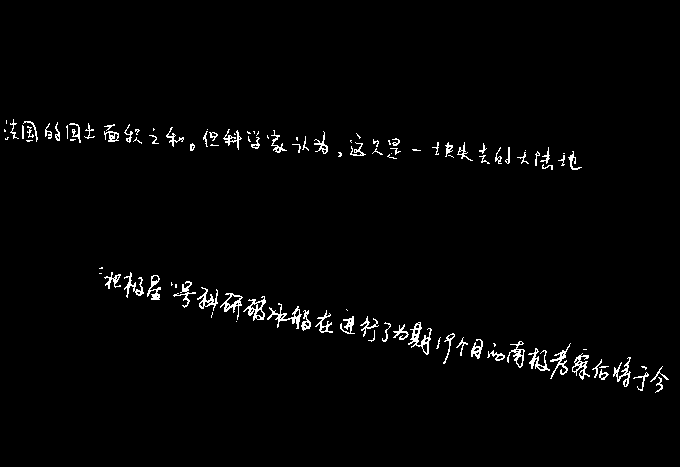 法国的国土面积之和。但科学家认为,这只是一块失去的大陆地
“北极星”号科研破冰船在进行了为期19个月的南极考察后将于今